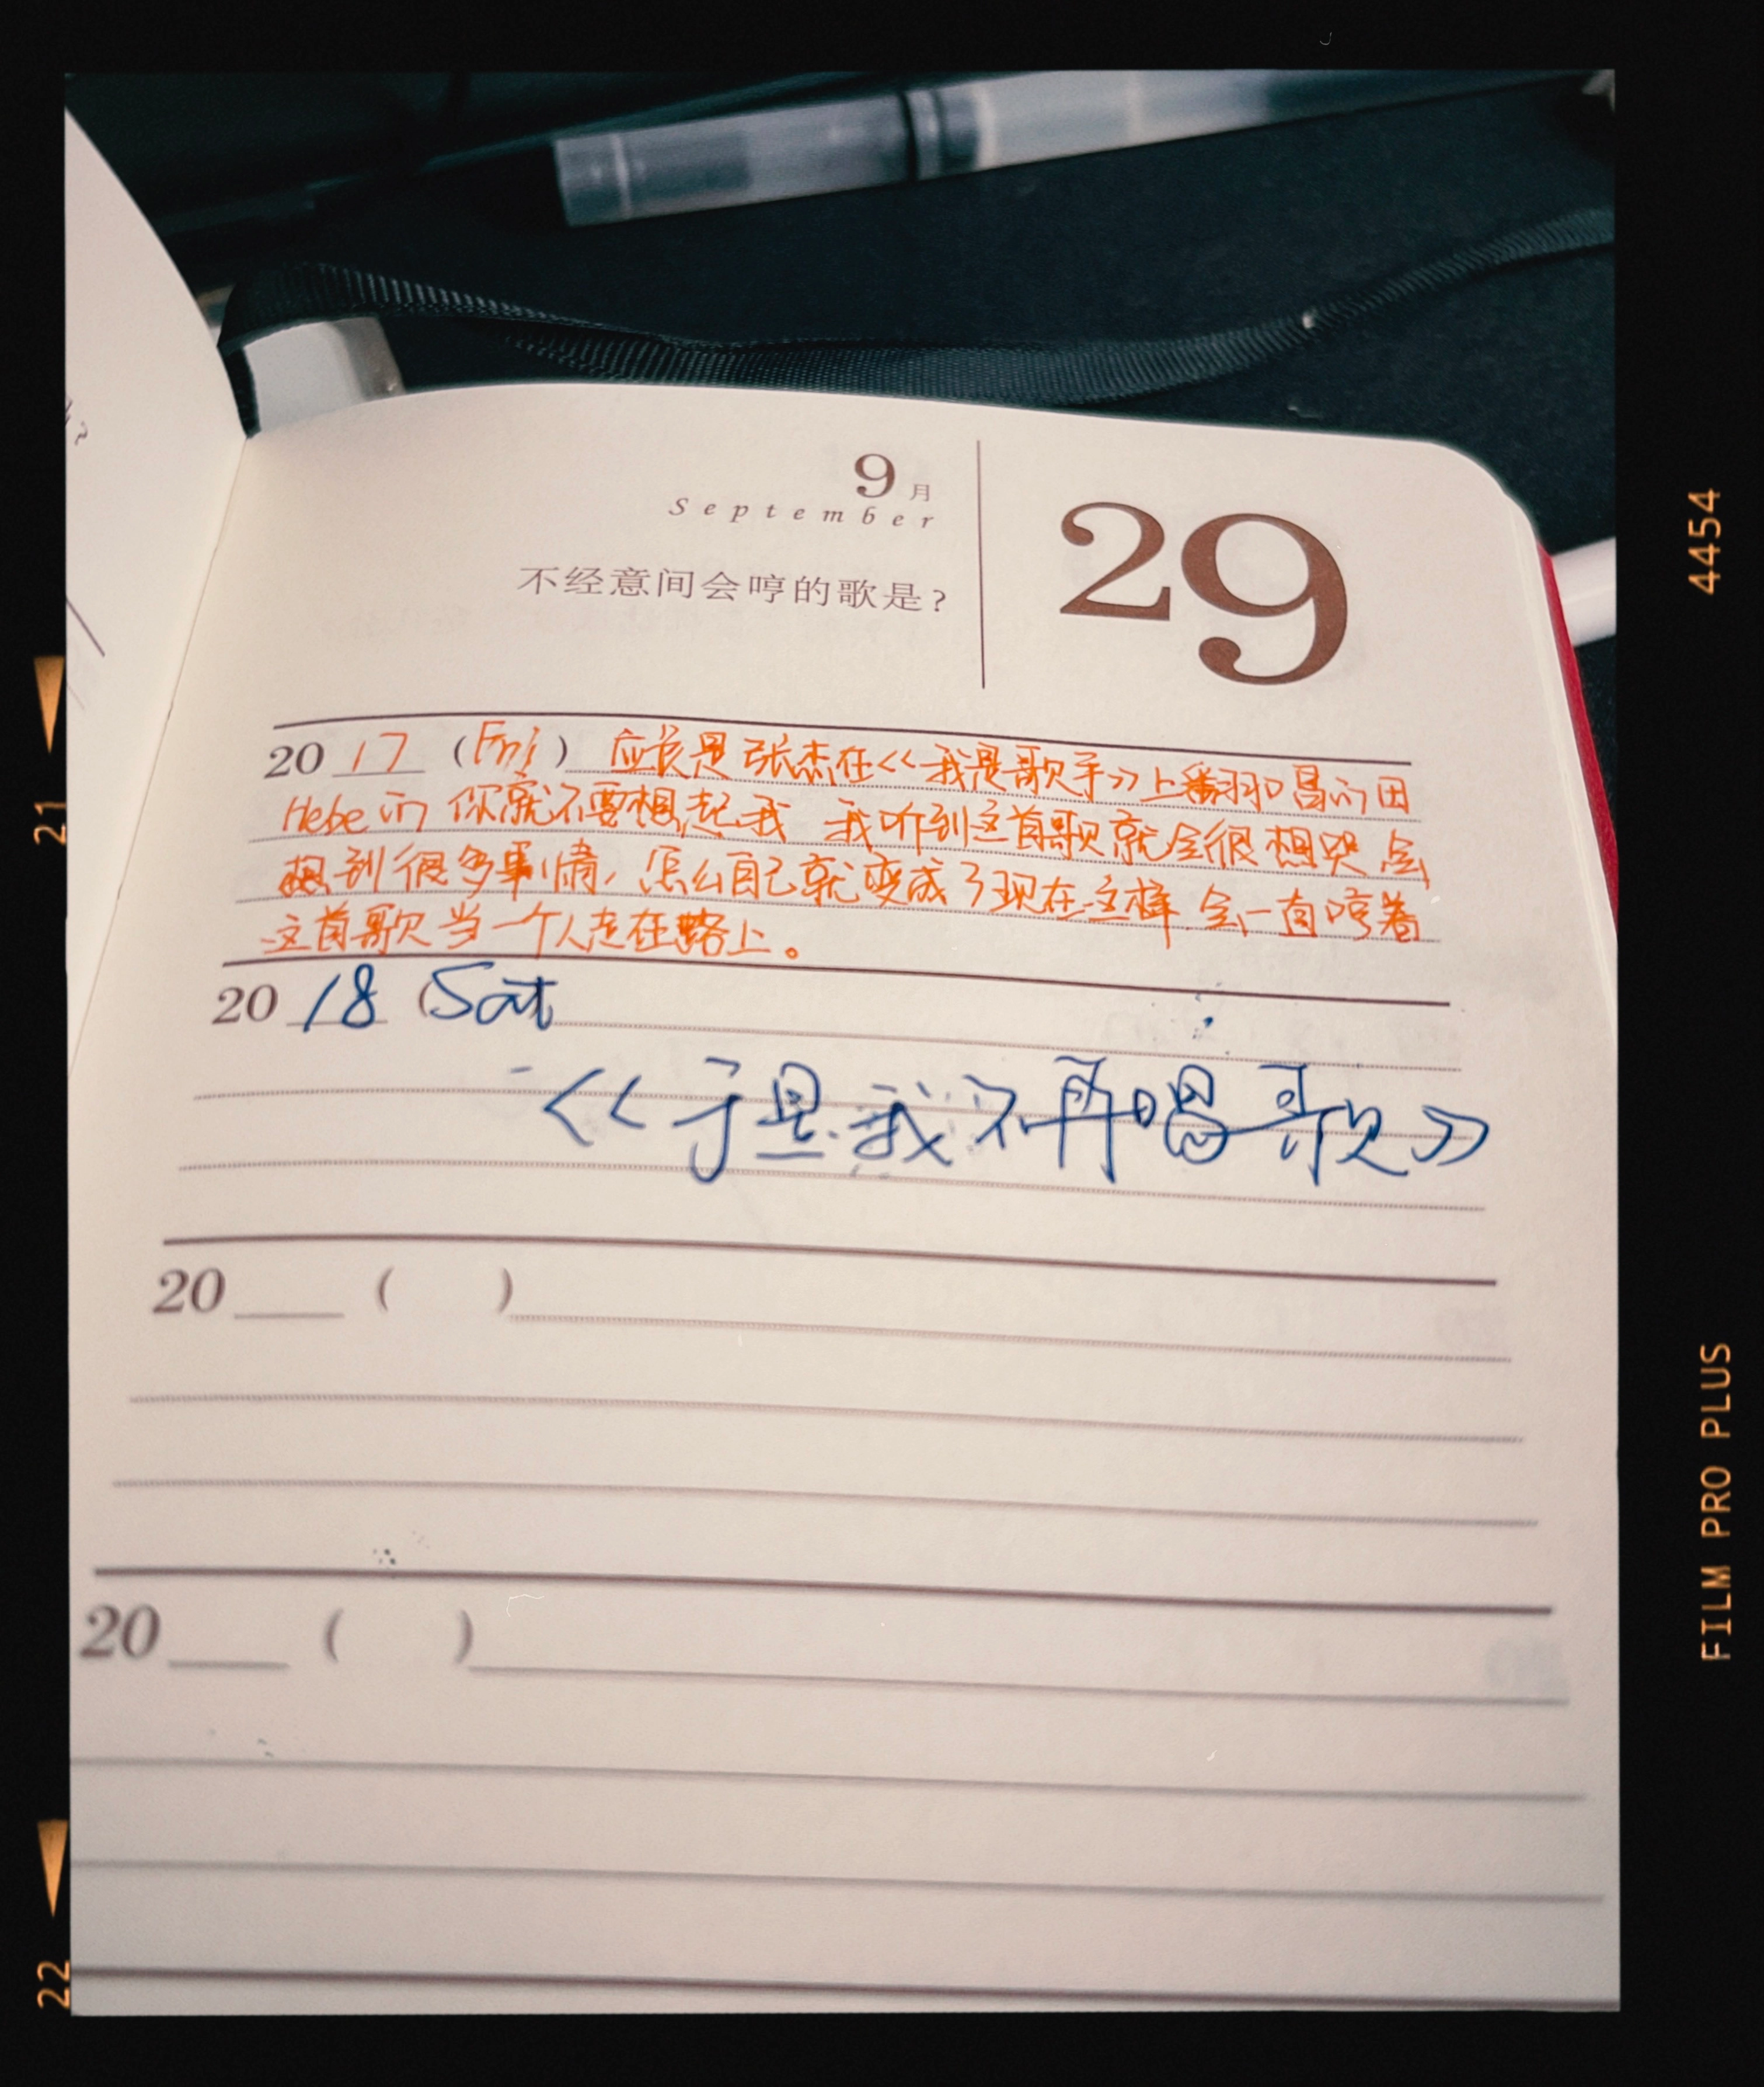 9月
September
29
不经意间会哼的歌是?
2017 (Fri) 应该是张杰在<<我是歌手>>上翻唱的田
Hebe的 你就不要想起我 我听到这首歌就会很想哭 会
想到很多事情, 怎么自己就变成了现在这样 会一直哼着
这首歌 当一个人走在路上。
2018 (Sat
<<于是我不再唱歌>>
20 ( )
20 ( )
21
22
4454
FILM PRO PLUS